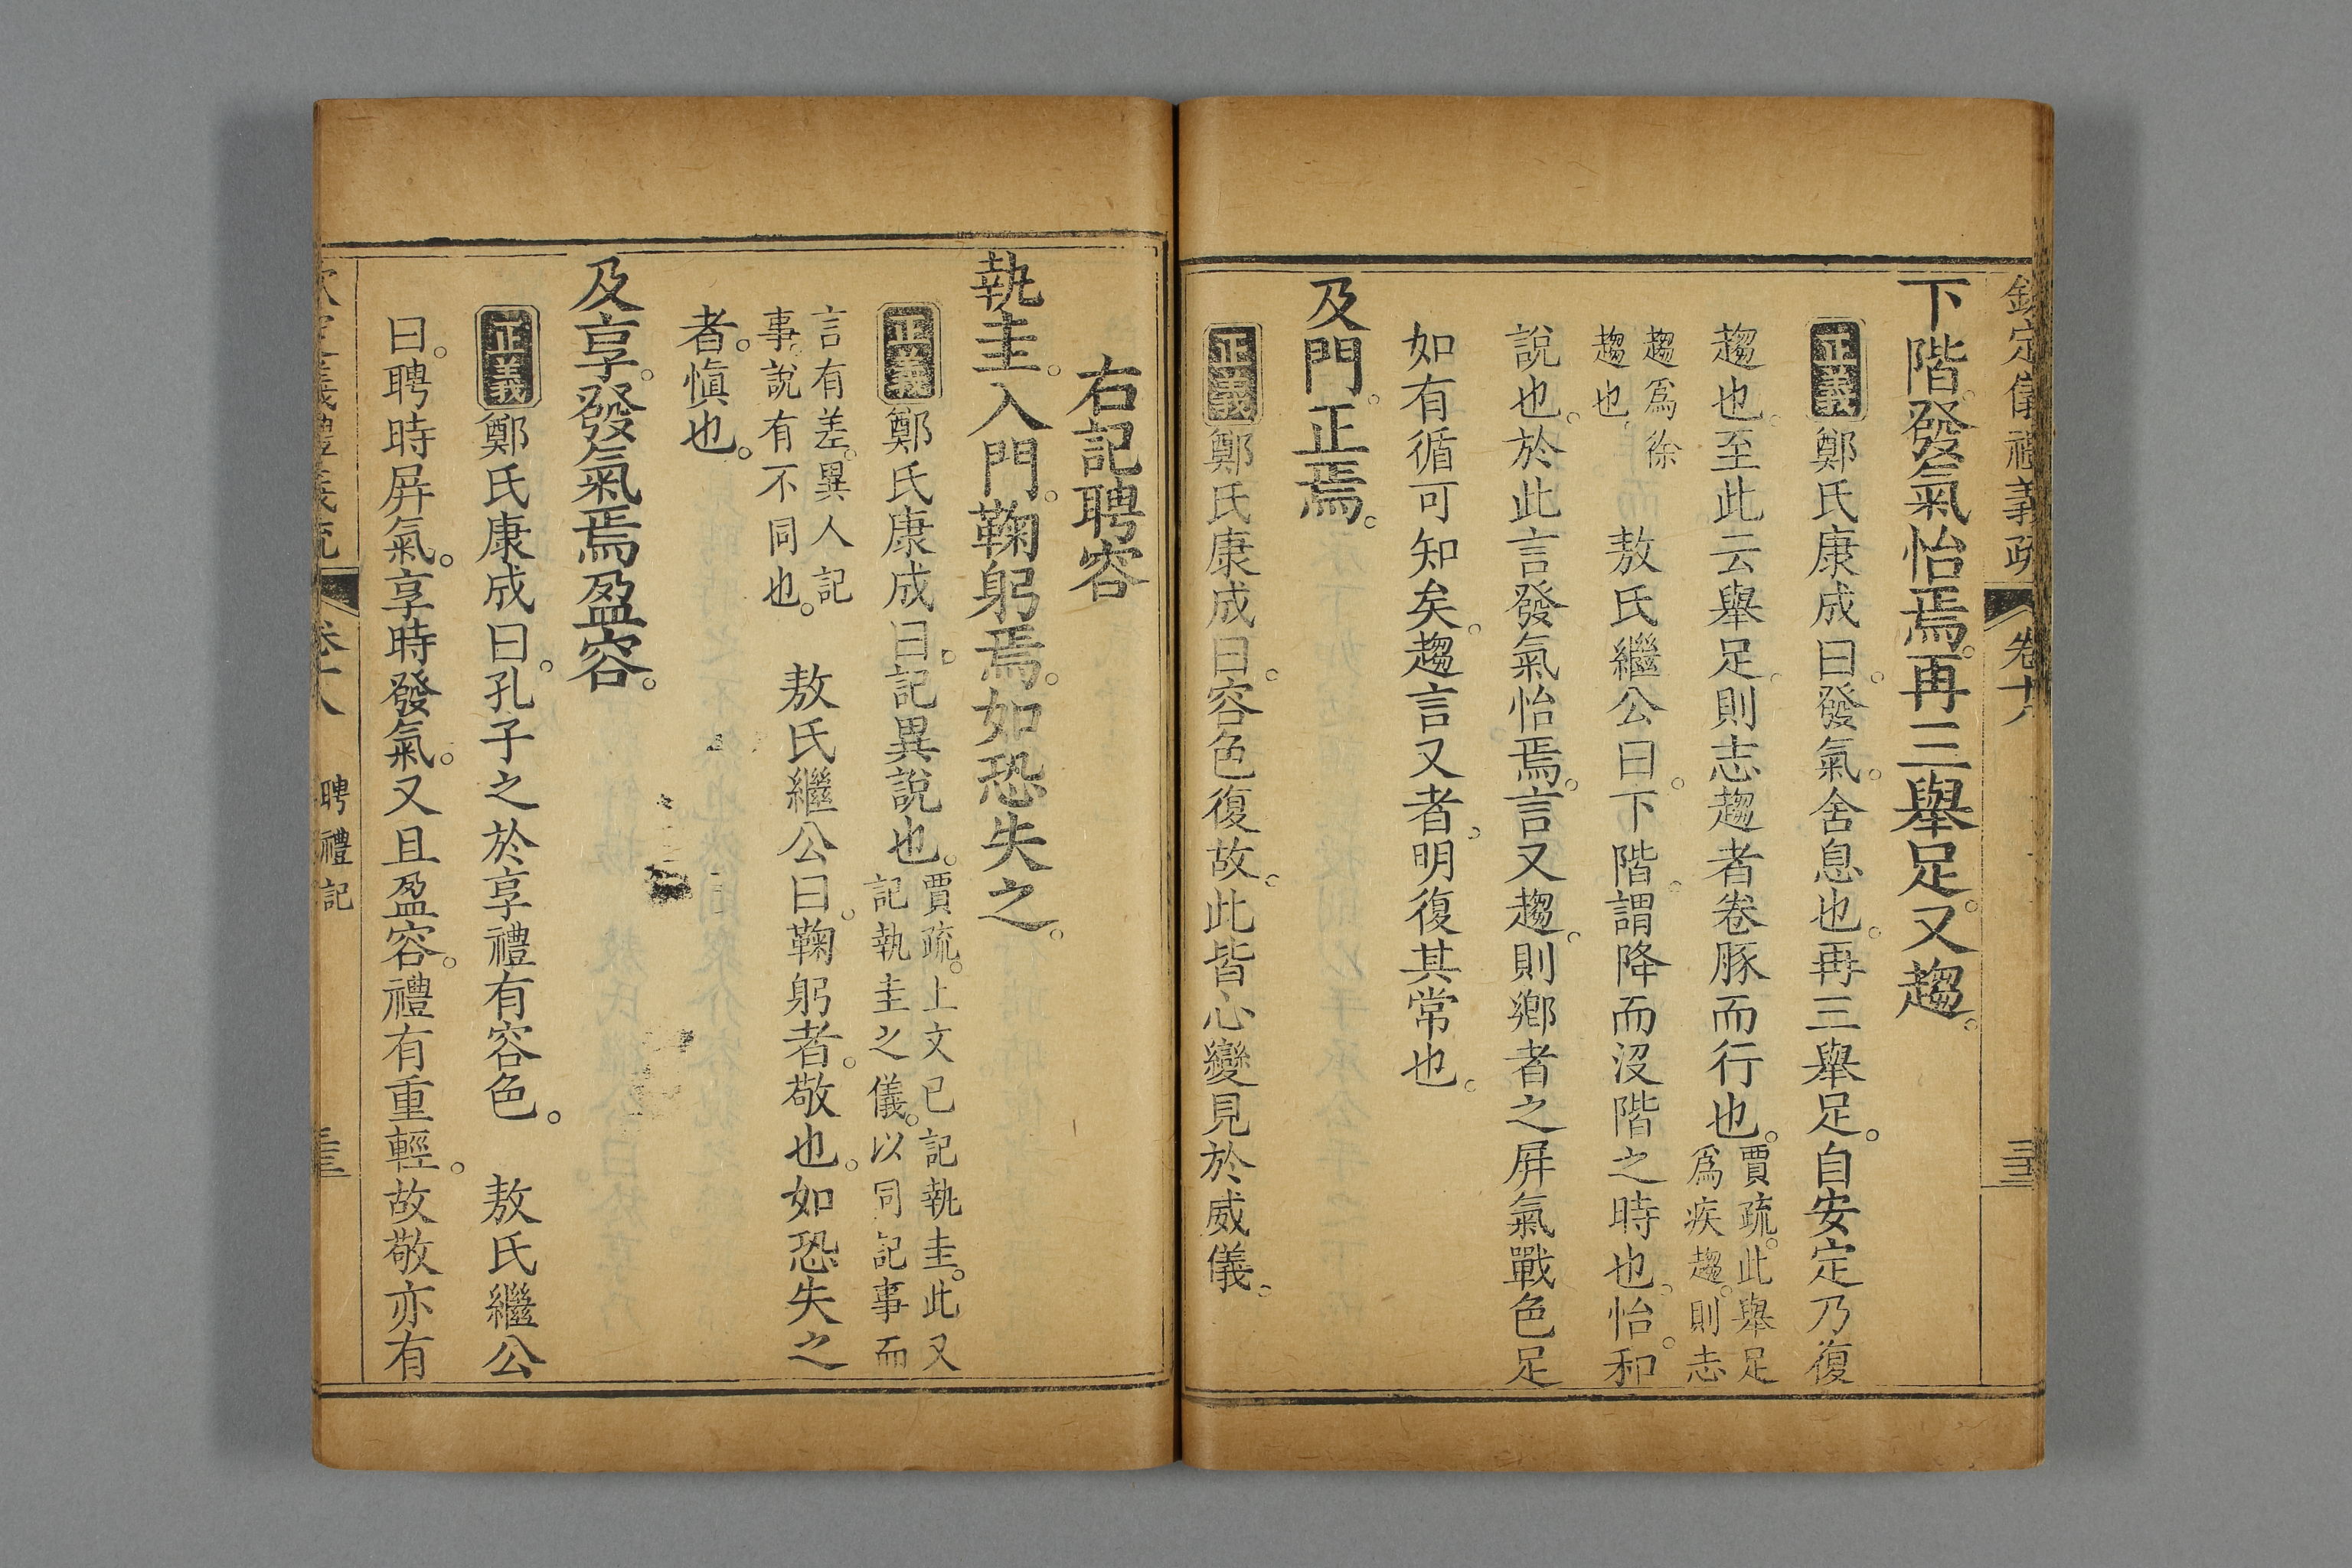 欽定儀禮義疏 卷十八
下階。發氣怡焉。再三舉足。又趨。
正義鄭氏康成曰。發氣。舍息也。再三舉足。自安定乃復
趨也。至此云舉足。則志趨者卷豚而行也。賈疏。此舉足
爲疾趨。則志
趨爲徐
趨也。 敖氏繼公曰。下階。謂降而沒階之時也。怡。和
說也。於此言發氣怡焉。言又趨。則鄉者之屏氣戰色足
如有循可知矣。趨言又者。明復其常也。
及門。正焉。
正義鄭氏康成曰。容色復故。此皆心變見於威儀。
右記聘容
執圭。入門。鞠躬焉。如恐失之。
正義鄭氏康成曰。記異說也。賈疏。上文已記執圭。此又
記執圭之儀。以同記事而
言有差。異人記
事。說有不同也。 敖氏繼公曰。鞠躬者。敬也。如恐失之
者。愼也。
及享。發氣焉盈容。
正義鄭氏康成曰。孔子之於享禮有容色。 敖氏繼公
曰。聘時屏氣。享時發氣。又且盈容。禮有重輕。故敬亦有
欽定儀禮義疏 卷十八 聘禮記